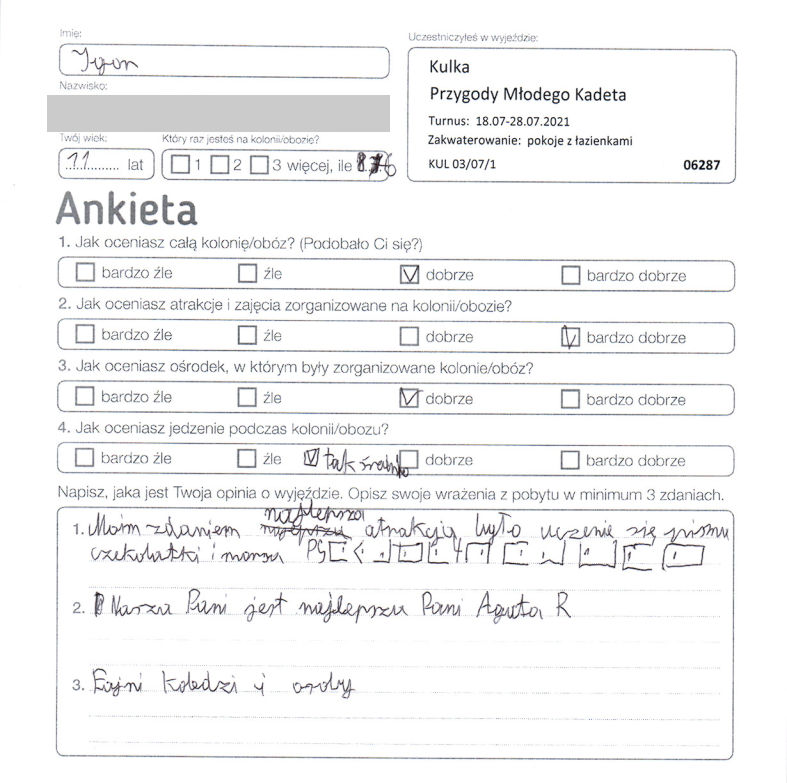 Imię:
Uczestniczyłeś w wyjeździe:
Igor
Kulka
Przygody Młodego Kadeta
Turnus: 18.07-28.07.2021
Zakwaterowanie: pokoje z łazienkami
KUL 03/07/1 06287
Nazwisko:
Twój wiek: Który raz jesteś na kolonii/obozie?
11 lat 1 2 3 więcej, ile
Ankieta
1. Jak oceniasz całą kolonię/obóz? (Podobało Ci się?)
bardzo źle źle dobrze bardzo dobrze
2. Jak oceniasz atrakcje i zajęcia zorganizowane na kolonii/obozie?
bardzo źle źle dobrze bardzo dobrze
3. Jak oceniasz ośrodek, w którym były zorganizowane kolonie/obóz?
bardzo źle źle dobrze bardzo dobrze
4. Jak oceniasz jedzenie podczas kolonii/obozu?
bardzo źle źle tak średnio dobrze bardzo dobrze
Napisz, jaka jest Twoja opinia o wyjeździe. Opisz swoje wrażenia z pobytu w minimum 3 zdaniach.
1. Moim zdaniem najlepsza atrakcją było uczenie się pismu
czekolatki i morsa PS
2. Nasza Pani jest najlepsza Pani Agata R
3. Fajni koledzi i osoby